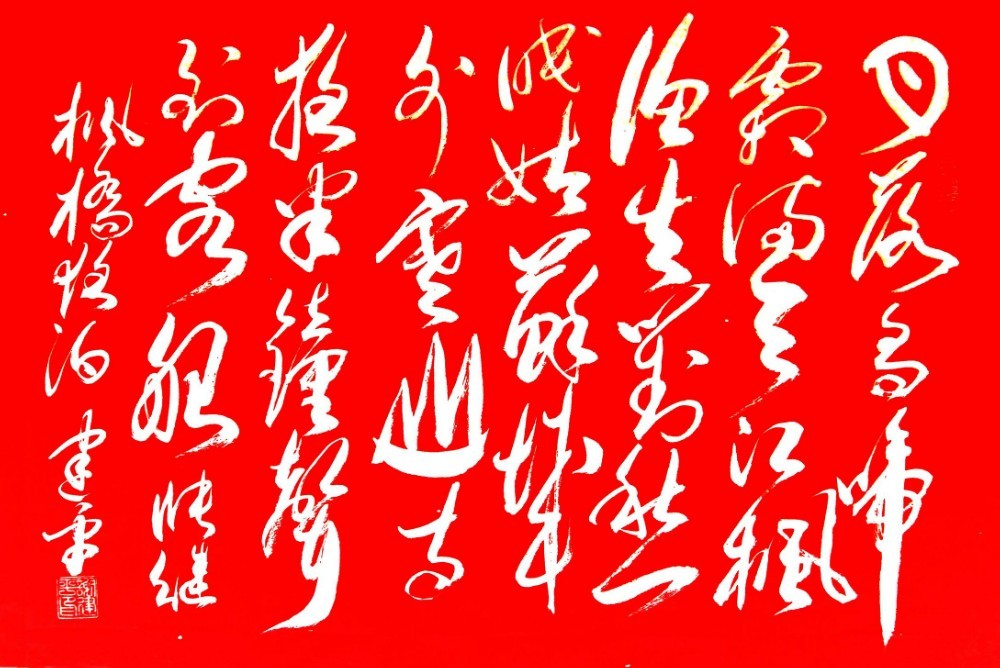 月落烏啼
霜满天江楓
渔火對愁
眠姑蘇城
外寒山寺
夜半鐘聲
到客船 張继
枫橋夜泊 建平